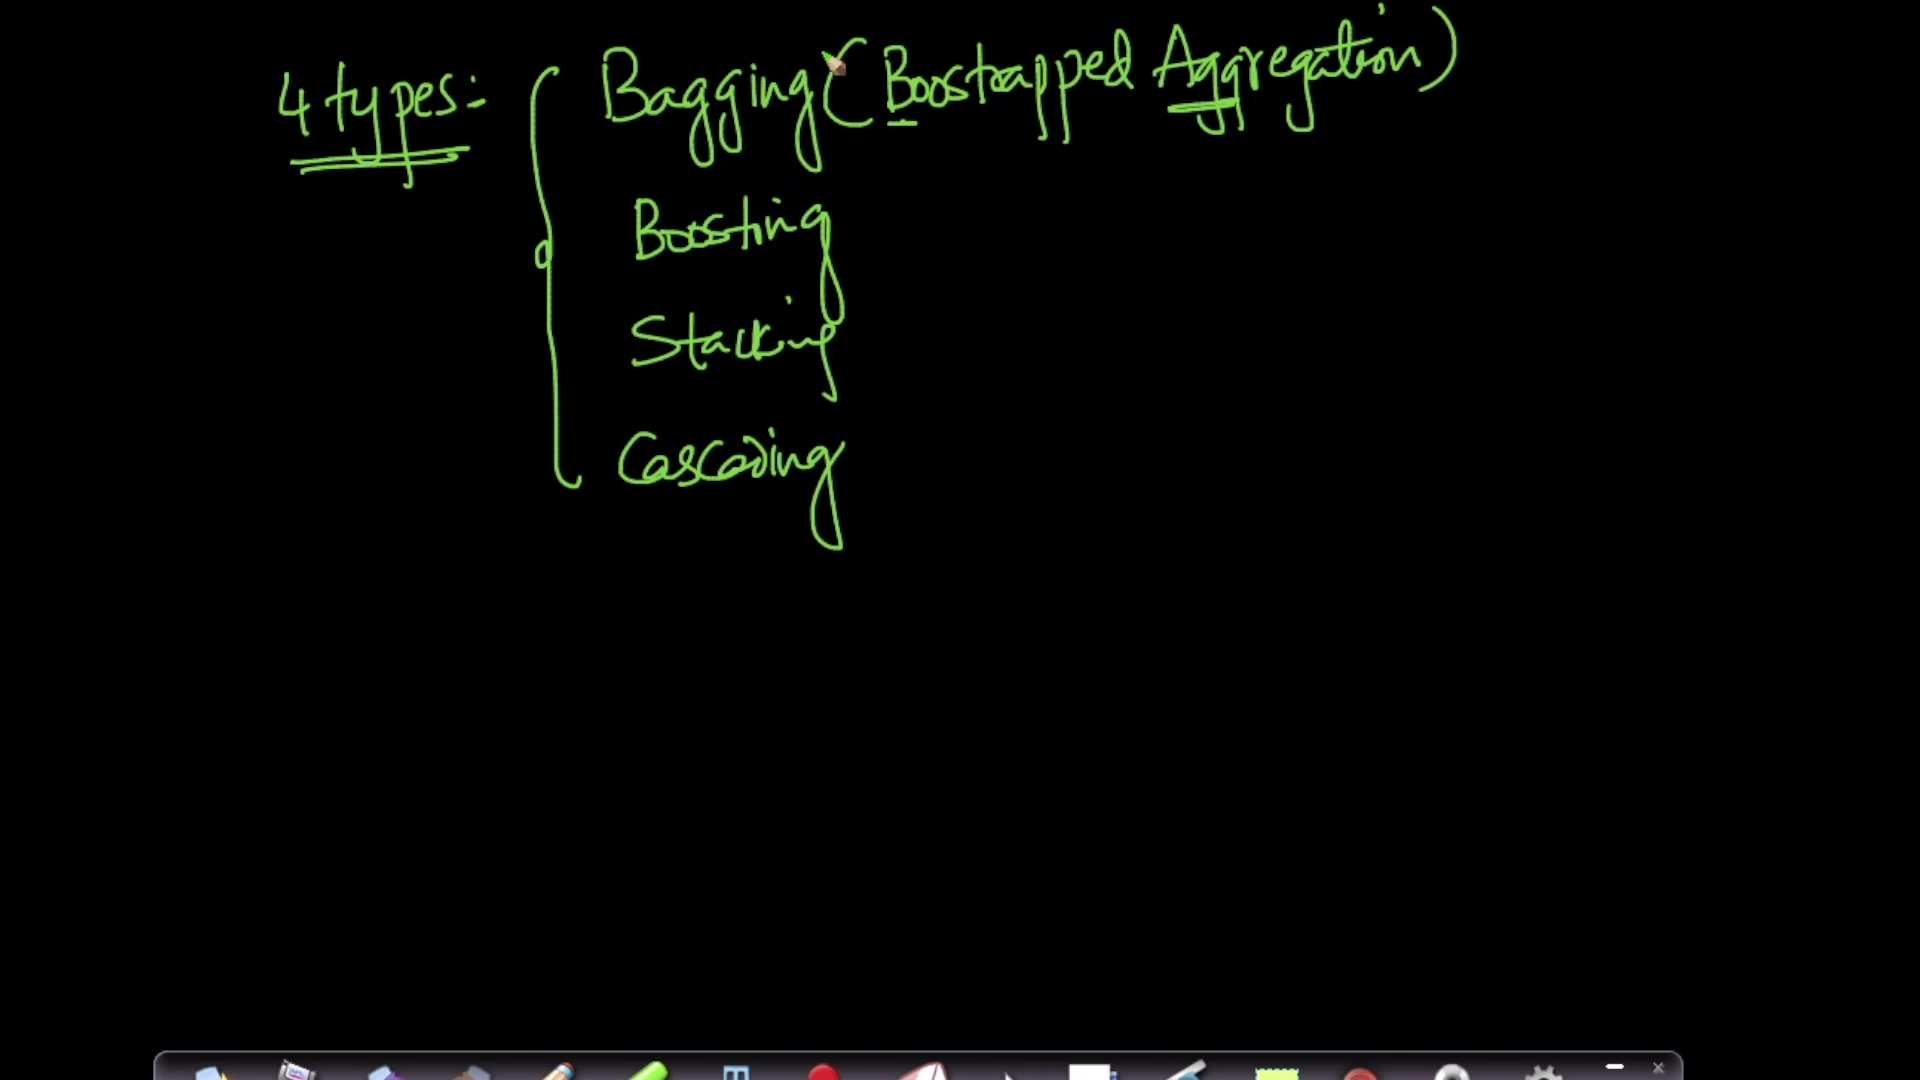 4 types:- Bagging (Boostrapped Aggregation)
Boosting
Stacking
Cascading